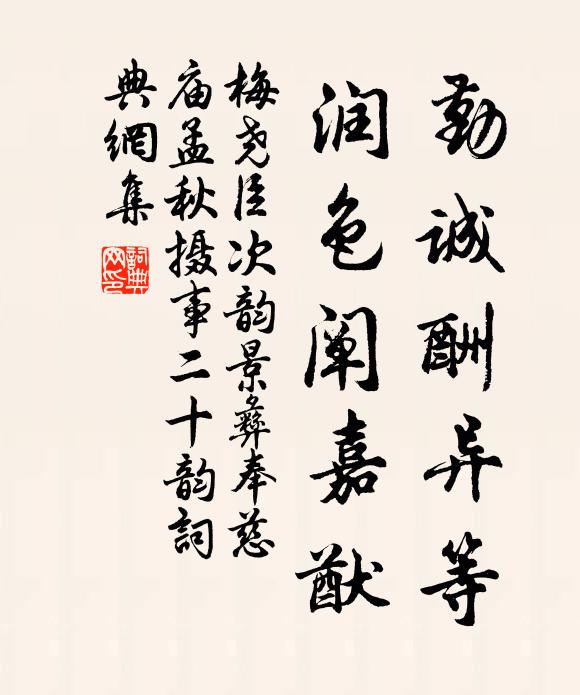 勤诚酬异等
润色阐嘉猷
梅尧臣次韵景彝奉慈
庙孟秋摄事二十韵詞
典網集
詞典
网印